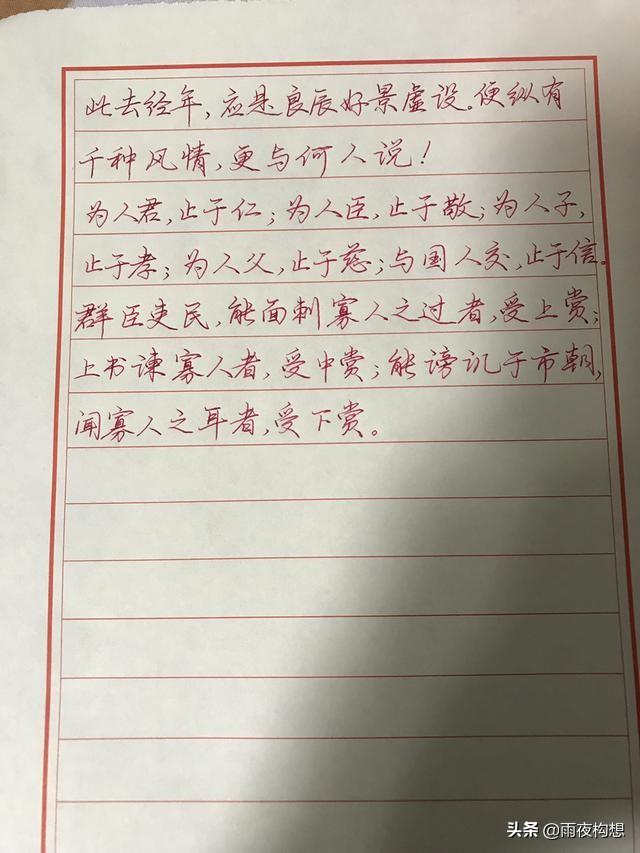 此去经年,应是良辰好景虚设。便纵有
千种风情,更与何人说!
为人君,止于仁;为人臣,止于敬;为人子,
止于孝;为人父,止于慈;与国人交,止于信。
群臣吏民,能面刺寡人之过者,受上赏;
上书谏寡人者,受中赏;能谤讥于市朝,
闻寡人之耳者,受下赏。
头条 @雨夜构想